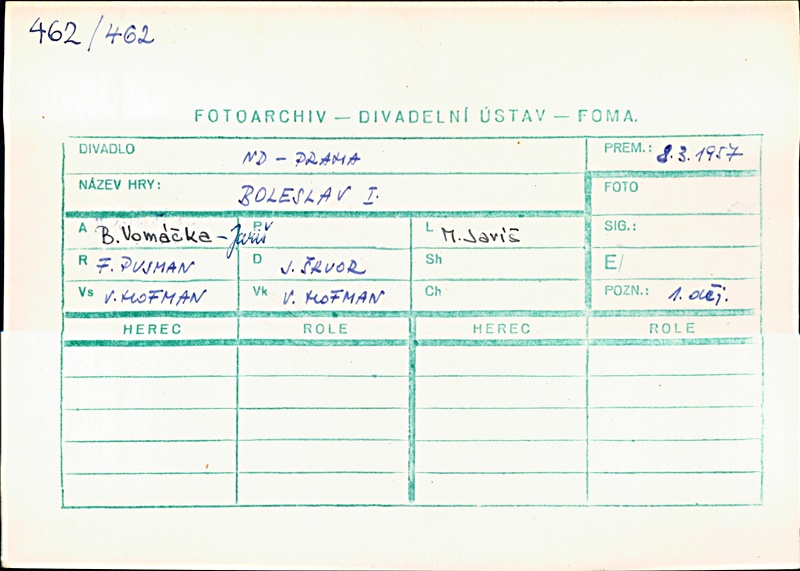 462/462
FOTOARCHIV — DIVADELNÍ ÚSTAV — FOMA.
DIVADLO ND - PRAHA PREM.: 8.3.1957
NÁZEV HRY: BOLESLAV I. FOTO
A B.Vomáčka - Jariš PV L M.Jariš SIG.:
R F. PUJMAN D J. ŠKVOR Sh E/
Vs V. HOFMAN Vk V. HOFMAN Ch POZN.: 1. děj.
HEREC ROLE HEREC ROLE